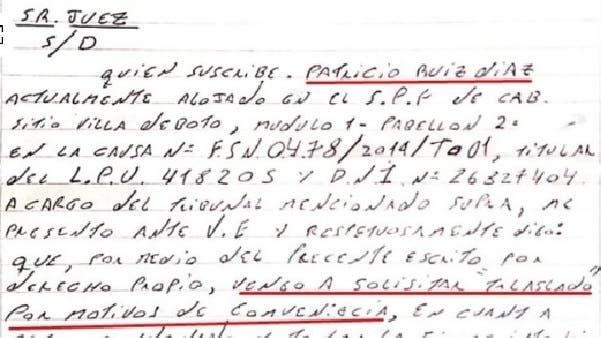 SR. JUEZ
S/D
QUIEN SUSCRIBE. PATRICIO RUIZ DIAZ
ACTUALMENTE ALOJADO EN EL S.P.F DE CAB.
SITIO VILLA DEVOTO, MODULO 1- PABELLON 2-
EN LA CAUSA Nº FSN.0478/2014/TO01, TITULAR
DEL L.P.U. 418205 Y D.N.I. Nº 26327404.
A CARGO DEL TRIBUNAL MENCIONADO SUPRA, ME
PRESENTO ANTE V.E Y RESPETUOSAMENTE DIGO:
QUE, POR MEDIO DEL PRECENTE ESCRITO POR
DERECHO PROPIO, VENGO A SOLISITAR "TRASLADO"
POR MOTIVOS DE CONVENIECIA, EN CUANTA